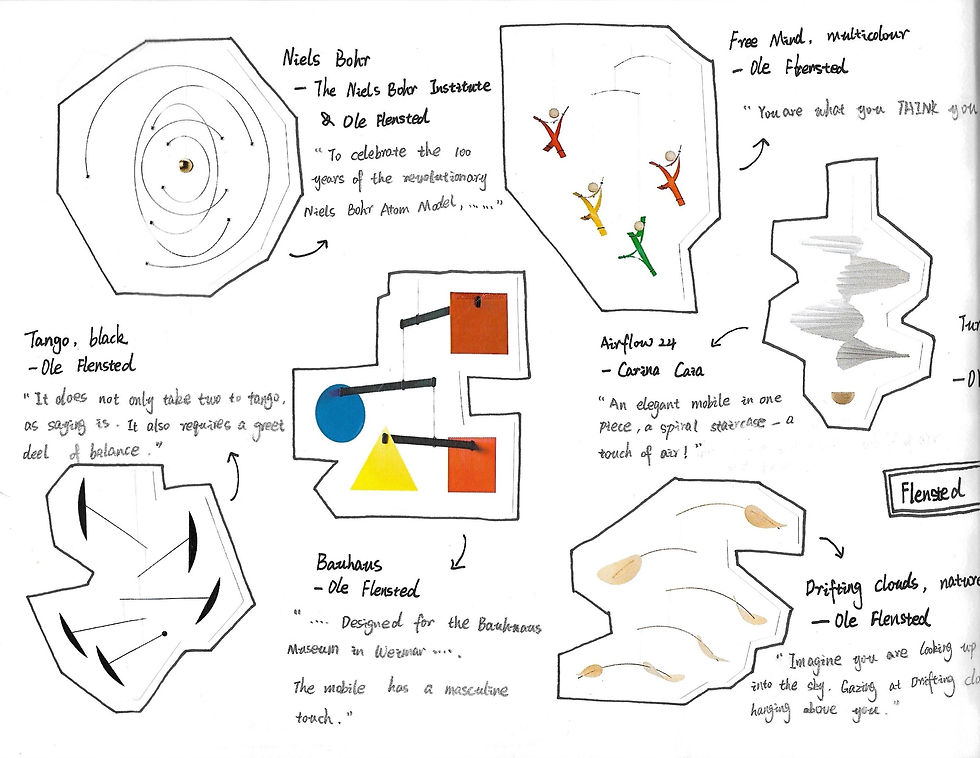 Niels Bohr
- The Niels Bohr Institute
& Ole Flensted
"To celebrate the 100
years of the revolutionary
Niels Bohr Atom Model, ......"
Free Mind, multicolour
- Ole Flensted
"You are what you THINK you
Tango, black
- Ole Flensted
"It does not only take two to tango,
as saying is. It also requires a greet
deel of balance."
Airflow 24
- Carina Caia
"An elegant mobile in one
piece, a spiral staircase - a
touch of air!"
Bauhaus
- Ole Flensted
".... Designed for the Bauhauas
Museum in Weimar ....
The mobile has a masculine
touch."
Flensted
Drifting clouds, nature
- Ole Flensted
"Imagine you are looking up
into the sky. Gazing at Drifting
hanging above you."